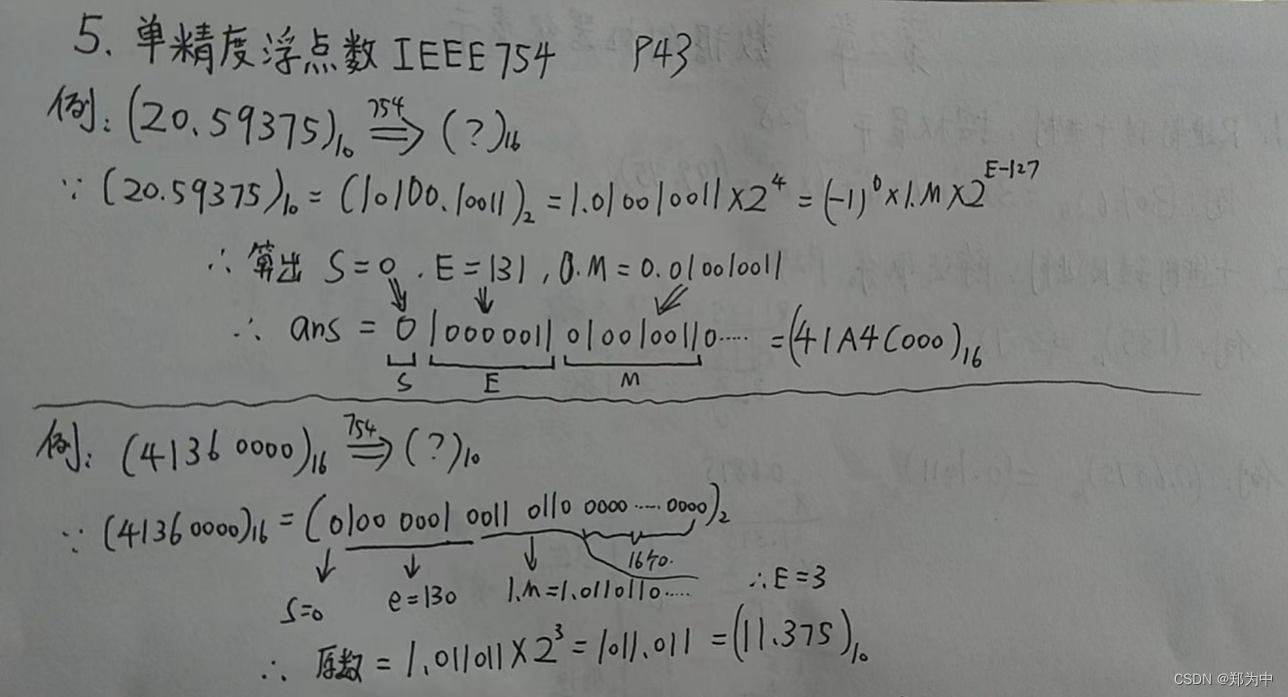 5. 单精度浮点数 IEEE754 P43
例: (20.59375)₁₀ 754⟹ (?)₁₆
∵ (20.59375)₁₀ = (10100.10011)₂ = 1.010010011×2⁴ = (-1)⁰×1.M×2^E-127
∴ 算出 S=0. E=131, 0.M=0.010010011
∴ ans = 0 10000011 0100100110····· = (41A4C000)₁₆
S E M
例: (41360000)₁₆ 754⟹ (?)₁₀
∵ (41360000)₁₆ = (0100 0001 0011 0110 0000 ····· 0000)₂
16个0.
S=0 e=130 1.m=1.0110110····· ∴E=3
∴ 原数 = 1.011011×2³ = 1011.011 = (11.375)₁₀
CSDN @郑为中